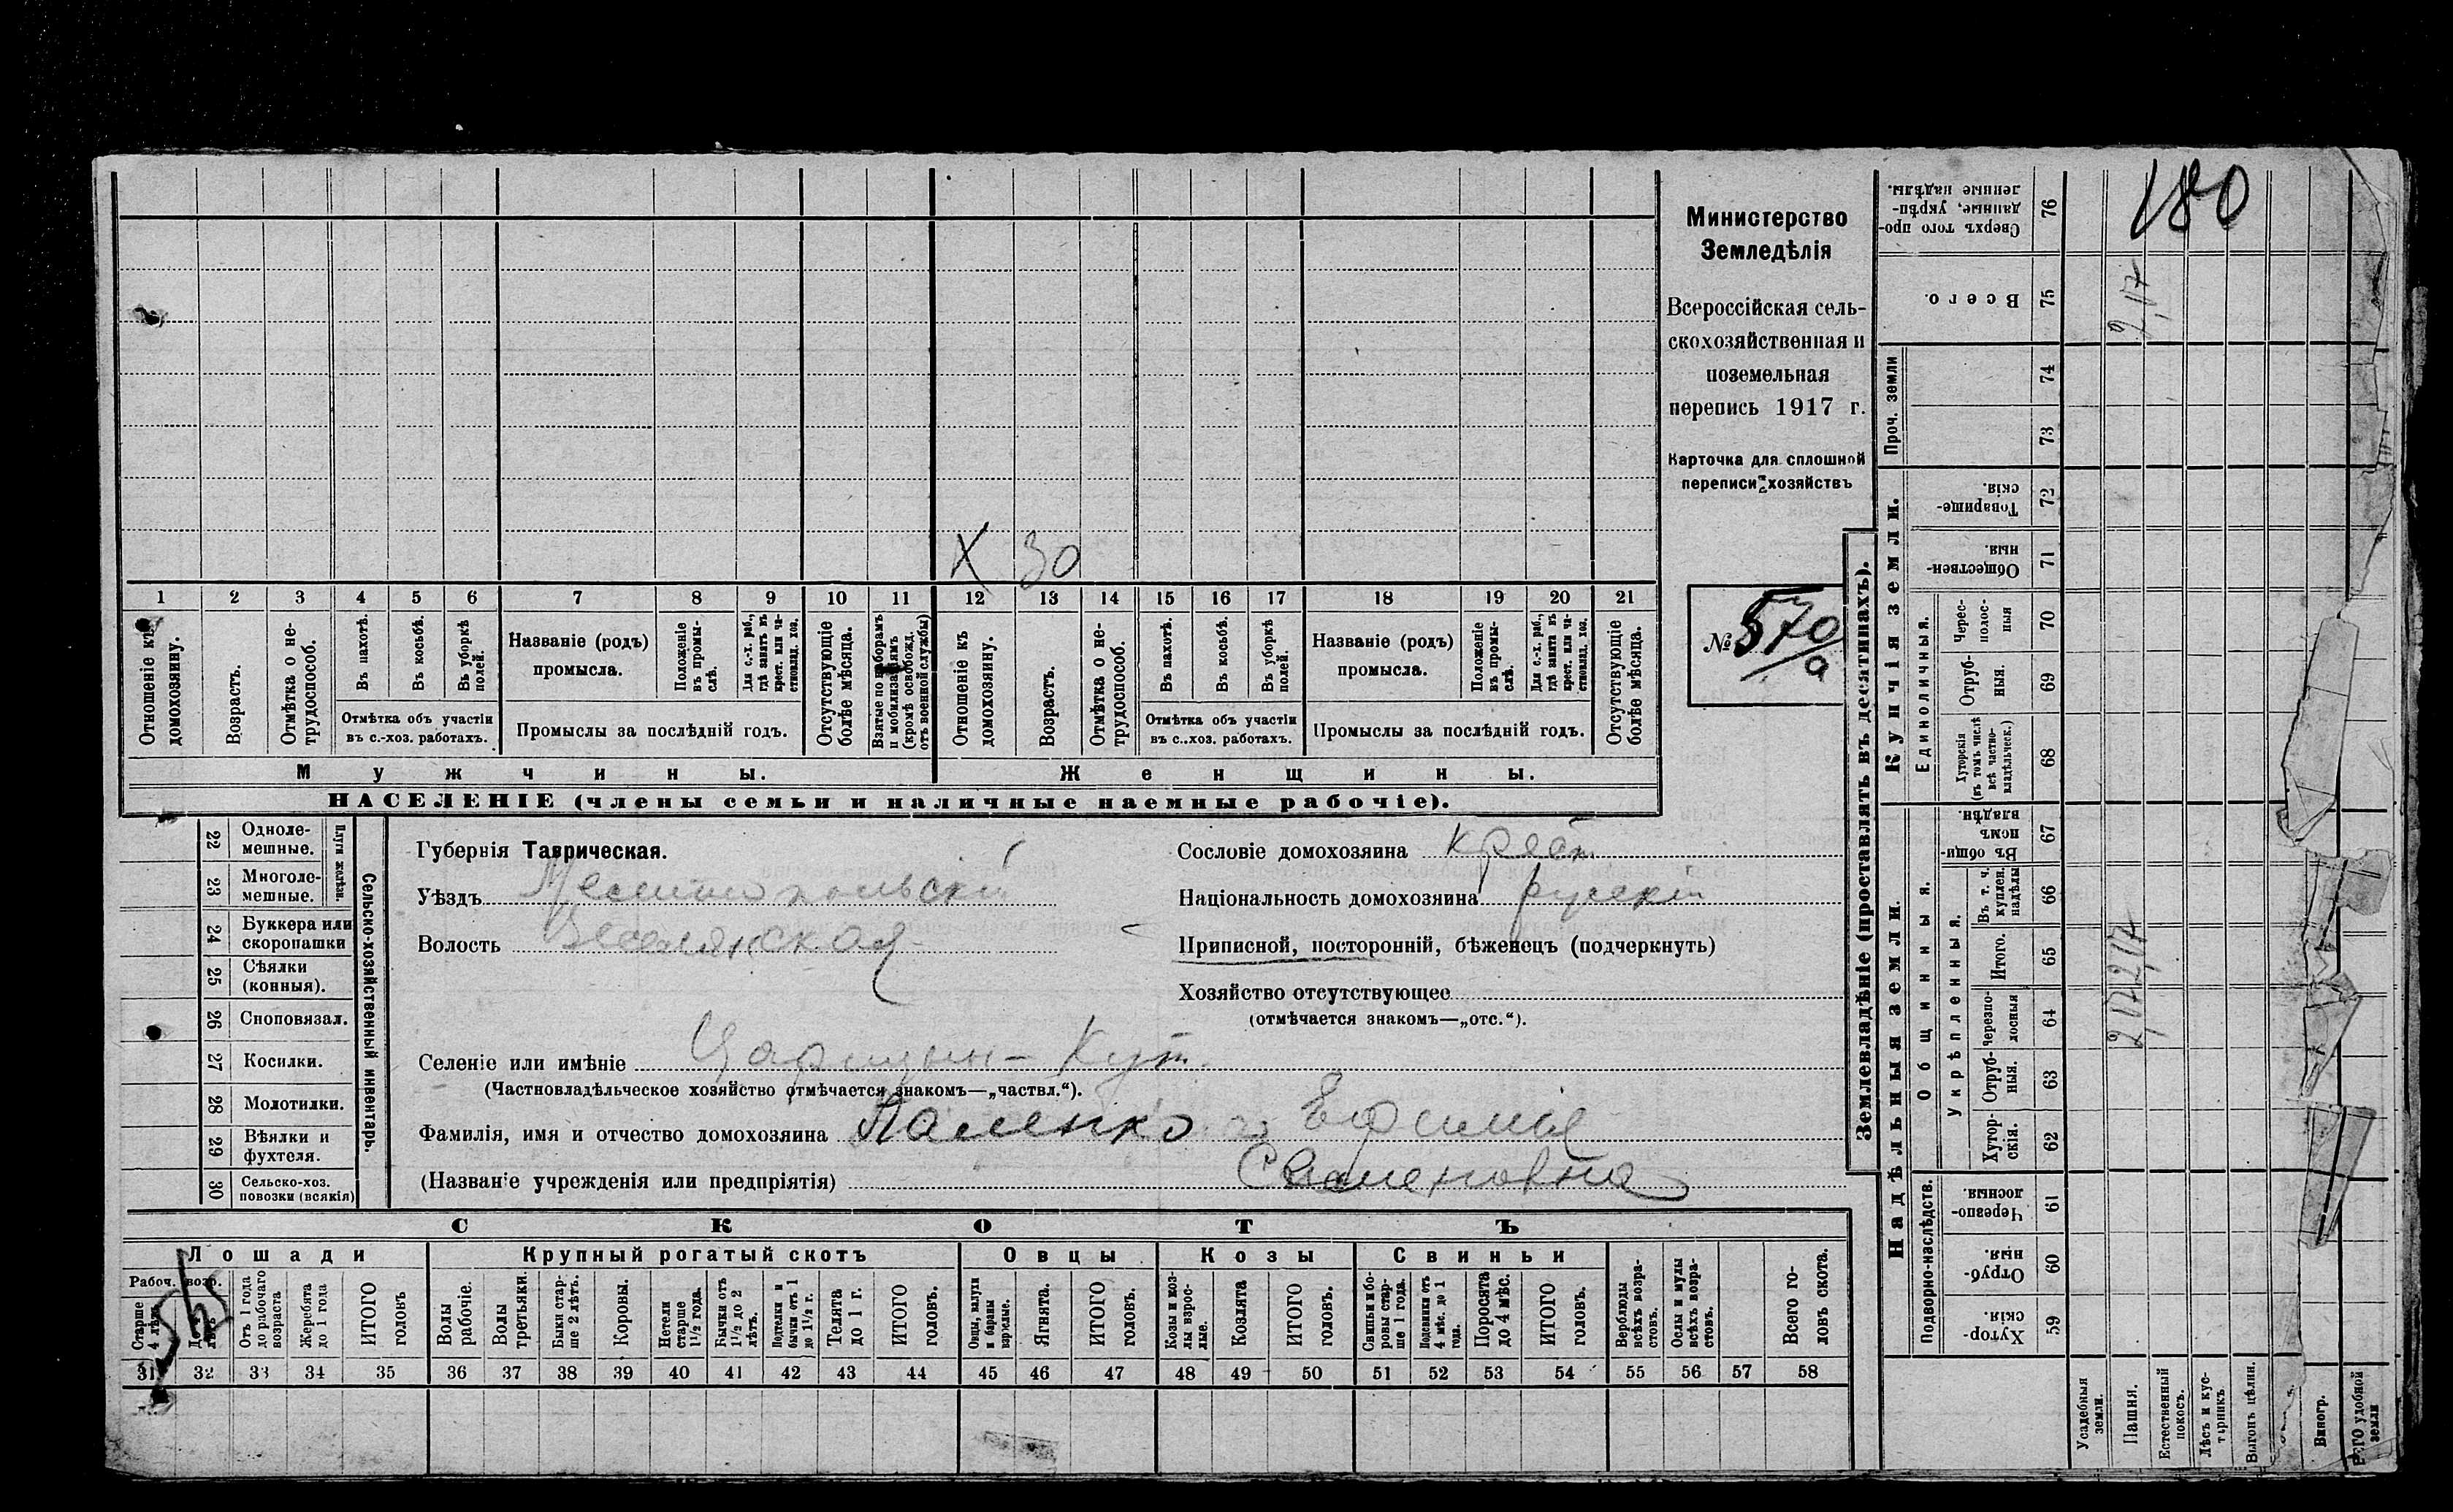 180
Министерство
Земледѣлія
Всероссійская сель-
скохозяйственная и
поземельная
перепись 1917 г.
Карточка для сплошной
переписи хозяйствъ
№ 570/а
X 30
1 2 3 4 5 6 7 8 9 10 11 12 13 14 15 16 17 18 19 20 21
Отношеніе къ домохозяину.
Возрастъ.
Отмѣтка о не-трудоспособ.
Въ пахотѣ.
Въ косьбѣ.
Въ уборкѣ полей.
Отмѣтка объ участіи
въ с.-хоз. работахъ.
Названіе (родъ)
промысла.
Положеніе въ промы-слѣ.
Для с.-х. раб., гдѣ занятъ въ крест. или ча-стновлад. хоз.
Промыслы за послѣдній годъ.
Отсутствующіе болѣе мѣсяца.
Взятые по наборамъ и мобилизаціямъ (кромѣ освобожд. отъ военной службы)
Отношеніе къ домохозяину.
Возрастъ.
Отмѣтка о не-трудоспособ.
Въ пахотѣ.
Въ косьбѣ.
Въ уборкѣ полей.
Отмѣтка объ участіи
въ с..хоз. работахъ.
Названіе (родъ)
промысла.
Положеніе въ промы-слѣ.
Для с.-х. раб., гдѣ занятъ въ крест. или ча-стновлад. хоз.
Промыслы за послѣдній годъ.
Отсутствующіе болѣе мѣсяца.
Мужчины. Женщины.
НАСЕЛЕНІЕ (члены семьи и наличные наемные рабочіе).
Сельско-хозяйственный инвентарь.
Плуги желѣзн.
22 Одноле-мешные.
23 Многоле-мешные.
24 Буккера или скоропашки
25 Сѣялки (конныя).
26 Сноповязал.
27 Косилки.
28 Молотилки.
29 Вѣялки и фухтеля.
30 Сельско-хоз. повозки (всякія)
Губернія Таврическая.
Уѣздъ Мелитопольскій
Волость Веселянская
Селеніе или имѣніе Царицынъ-Кут
(Частновладѣльческое хозяйство отмѣчается знакомъ—„частвл.“).
Фамилія, имя и отчество домохозяина Паленко Ефимія
(Названіе учрежденія или предпріятія) Семеновна
Сословіе домохозяина крест
Національность домохозяина русскій
Приписной, посторонній, бѣженецъ (подчеркнуть)
Хозяйство отсутствующее
(отмѣчается знакомъ—„отс.“).
СКОТЪ
Лошади Крупный рогатый скотъ Овцы Козы Свиньи
Рабоч. возр.
Старше 4 лѣтъ
Отъ 1 года до рабочаго возраста
Жеребята до 1 года
ИТОГО головъ
Волы рабочіе.
Волы третьяки.
Быки стар-ше 2 лѣтъ.
Коровы.
Нетели старше 1½ года.
Бычки отъ 1½ до 2 лѣтъ.
Подтелки и бычки отъ 1 до 1½ г.
Телята до 1 г.
ИТОГО головъ.
Овцы, валухи и бараны взрослые.
Ягнята.
ИТОГО головъ.
Козы и коз-лы взрос-лые.
Козлята
ИТОГО головъ.
Свиньи и бо-ровы стар-ше 1 года.
Подсвинки отъ 4 мѣс. до 1 года.
Поросята до 4 мѣс.
ИТОГО головъ.
Верблюды всѣхъ возра-стовъ.
Ослы и мулы всѣхъ возра-стовъ.
Всего го-ловъ скота.
31 32 33 34 35 36 37 38 39 40 41 42 43 44 45 46 47 48 49 50 51 52 53 54 55 56 57 58
Землевладѣніе (проставлять въ десятинахъ).
Надѣльныя земли.
Купчія земли.
Проч. земли
Подворно-наслѣдств.
Общинныя.
Укрѣпленныя.
Единоличныя.
76 Сверхъ того про-данные, укрѣп-ленные надѣлы.
75 Всего. 2,17
74
73
72 Товарище-скія.
71 Обществен-ныя.
70 Черес-полос-ныя
69 Отруб-ныя.
68 Хуторскія (въ томъ числѣ всѣ частно-владѣльческ.)
67 Въ общи-номъ владѣн.
66 Въ т. ч. куплен. надѣлы
65 Итого. 2,17
64 Черезпо-лосныя 2,17
63 Отруб-ныя.
62 Хутор-скія.
61 Черезпо-лосныя.
60 Отруб-ныя.
59 Хутор-скія.
Усадебныя земли.
Пашня.
Естественный покосъ.
Лѣсъ и кус-тарникъ.
Выгонъ цѣлин.
Виногр.
удобной земли